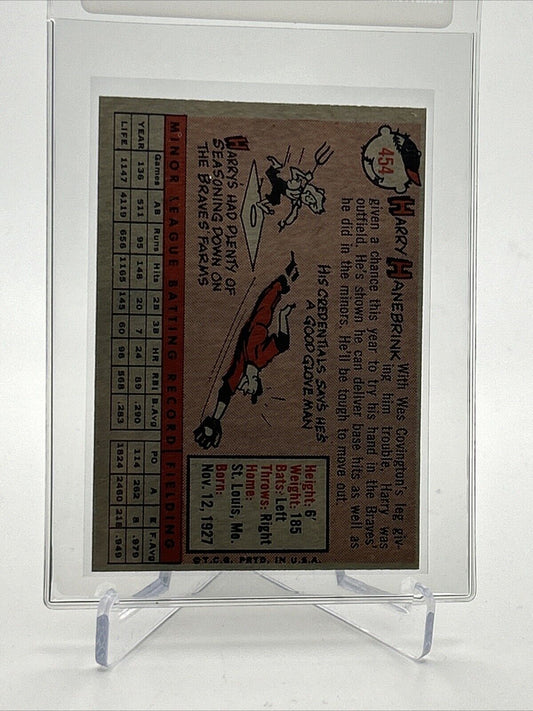 454
HARRY HANEBRINK
With Wes Covington's leg giv-
ing him trouble, Harry was
given a chance this year to try his hand in the Braves'
outfield. He's shown he can deliver base hits as well as
he did in the minors. He'll be tough to move out.
HARRYS HAD PLENTY OF
SEASONING DOWN ON
THE BRAVES FARMS
HIS CREDENTIALS SAYS HE'S
A GOOD GLOVE MAN
Height: 6'
Weight: 185
Bats: Left
Throws: Right
Home:
St. Louis, Mo.
Born:
Nov. 12, 1927
©T.C.G. PRTD. IN U.S.A.
MINOR LEAGUE BATTING RECORD FIELDING
Games AB Runs Hits 2B 3B HR RBI B.Avg PO A E F.Avg
YEAR 136 511 95 148 20 7 24 89 .290 114 262 8 .979
LIFE 1147 4119 656 1165 145 60 96 568 .283 1824 2460 218 .949